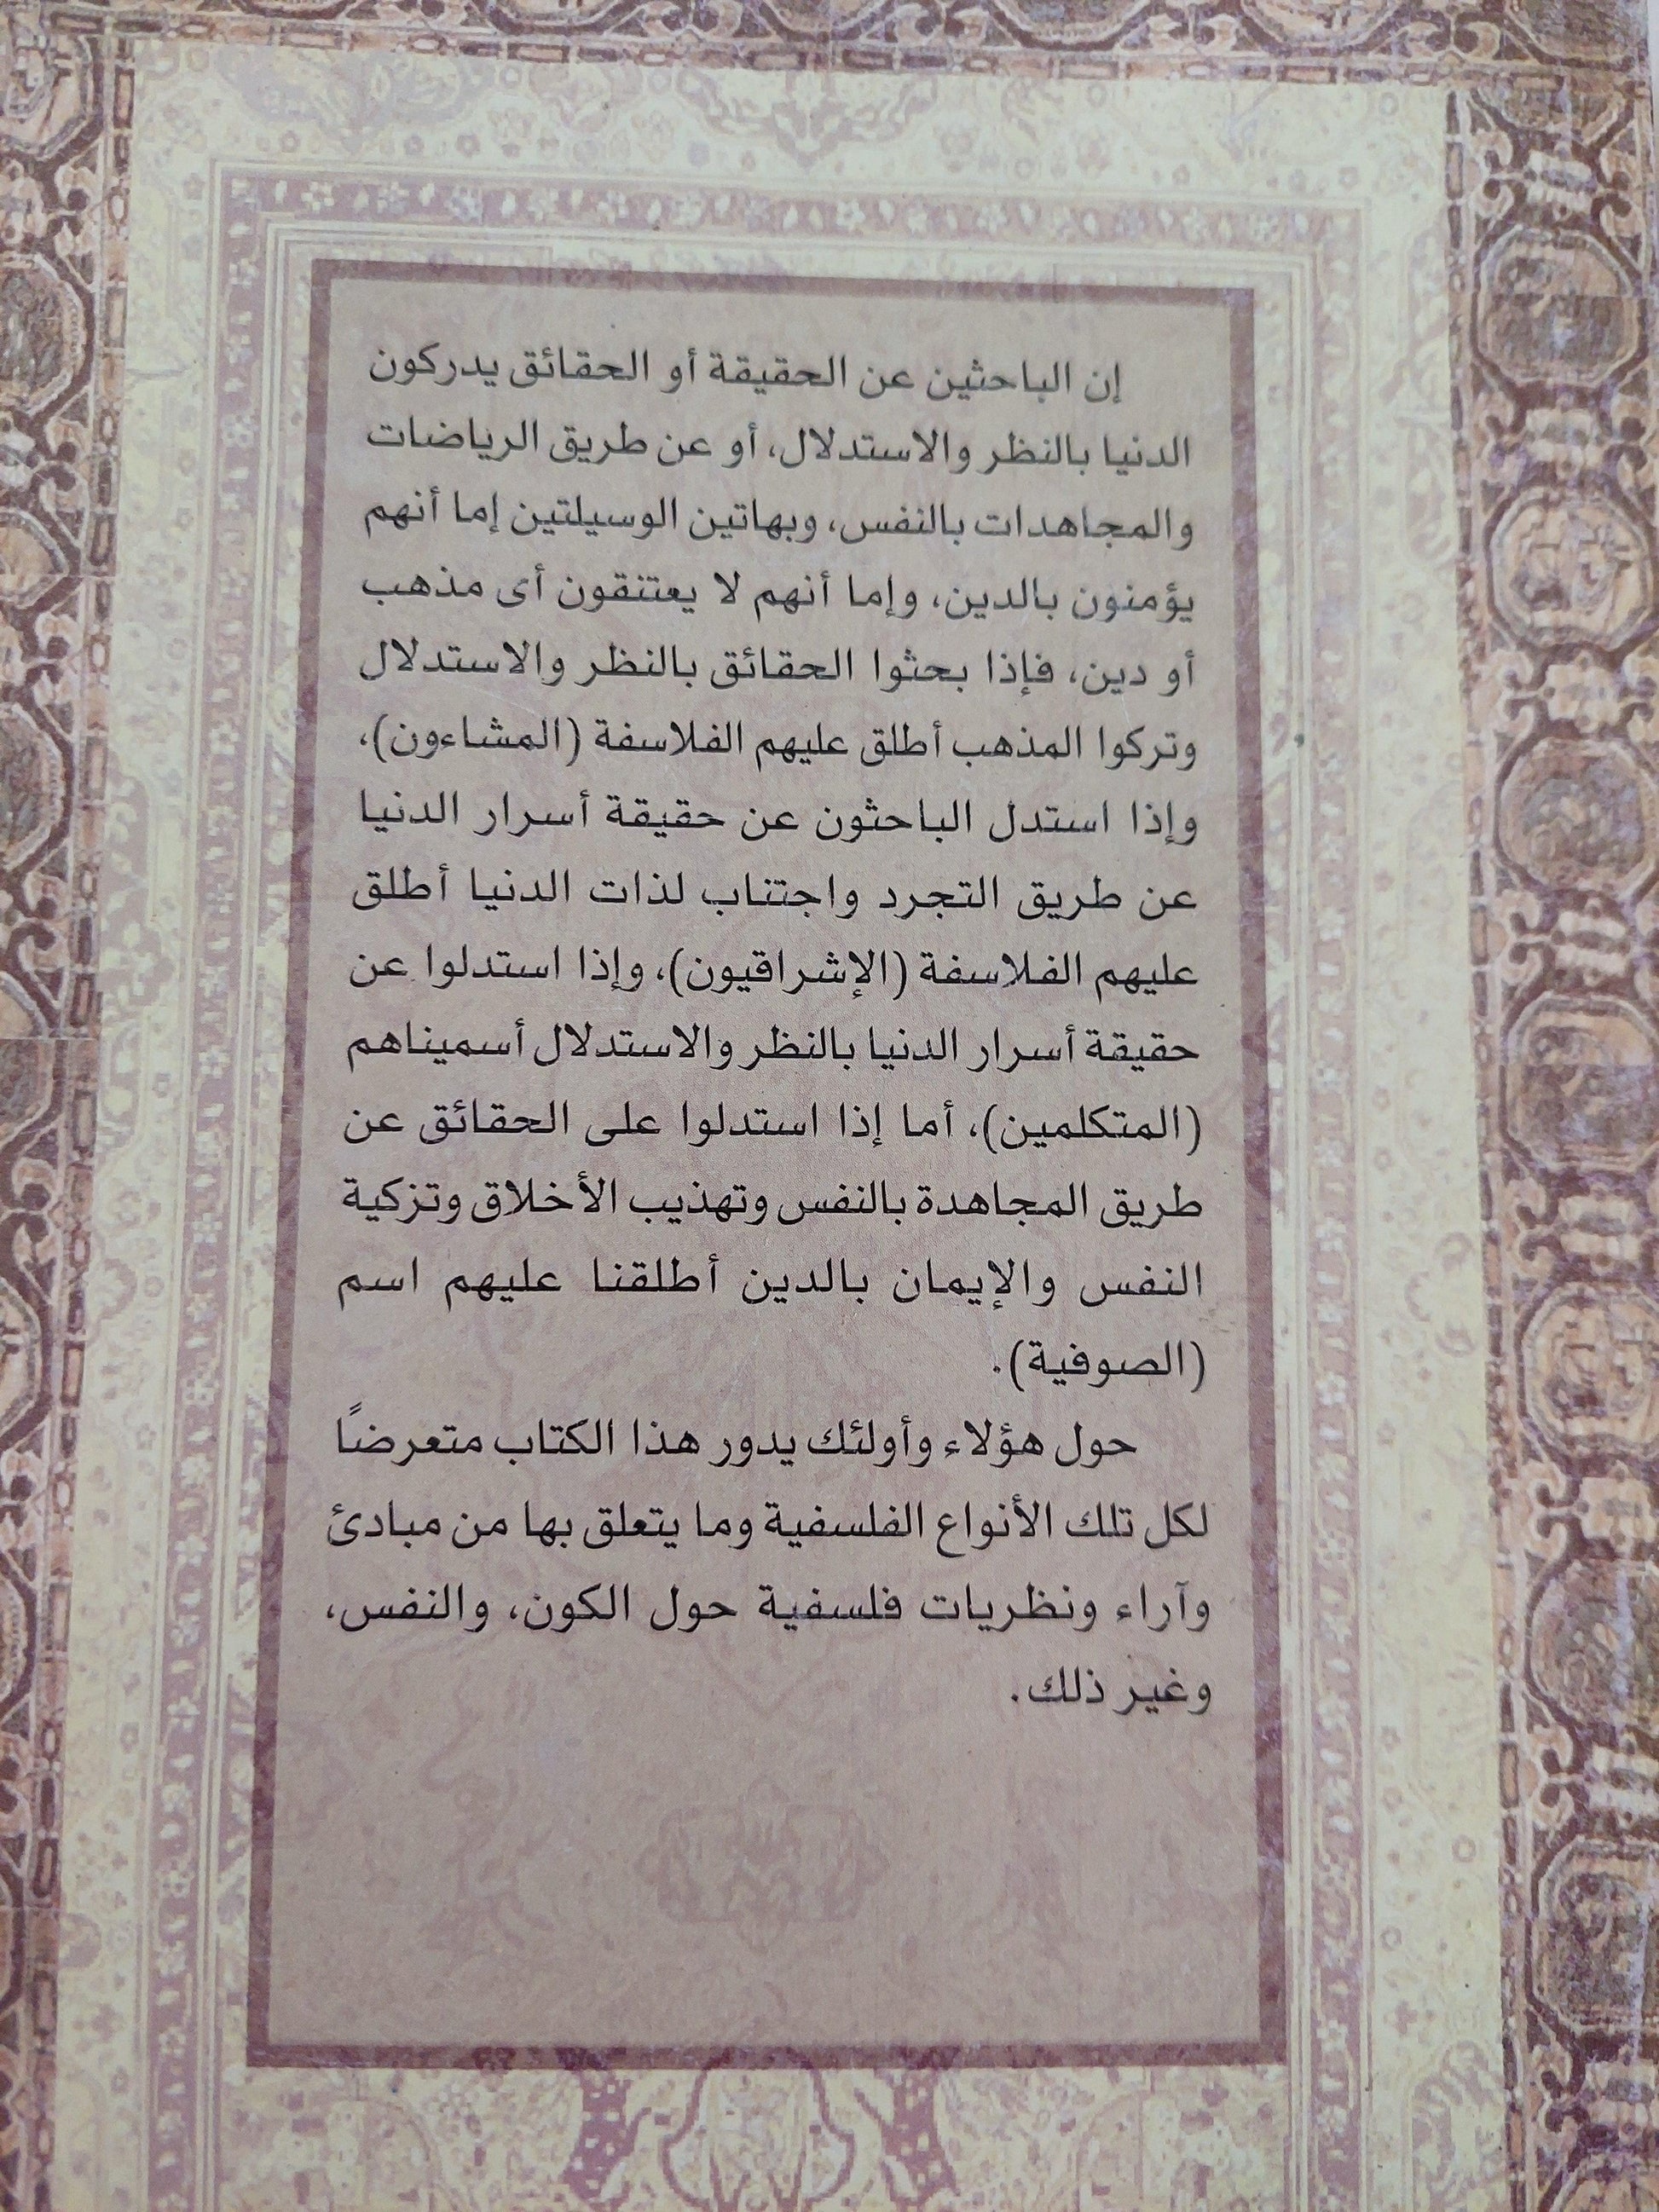 إن الباحثين عن الحقيقة أو الحقائق يدركون
الدنيا بالنظر والاستدلال، أو عن طريق الرياضات
والمجاهدات بالنفس، وبهاتين الوسيلتين إما أنهم
يؤمنون بالدين، وإما أنهم لا يعتنقون أى مذهب
أو دين، فإذا بحثوا الحقائق بالنظر والاستدلال
وتركوا المذهب أطلق عليهم الفلاسفة (المشاءون)،
وإذا استدل الباحثون عن حقيقة أسرار الدنيا
عن طريق التجرد واجتناب لذات الدنيا أطلق
عليهم الفلاسفة (الإشراقيون)، وإذا استدلوا عن
حقيقة أسرار الدنيا بالنظر والاستدلال أسميناهم
(المتكلمين)، أما إذا استدلوا على الحقائق عن
طريق المجاهدة بالنفس وتهذيب الأخلاق وتزكية
النفس والإيمان بالدين أطلقنا عليهم اسم
(الصوفية).
حول هؤلاء وأولئك يدور هذا الكتاب متعرضًا
لكل تلك الأنواع الفلسفية وما يتعلق بها من مبادئ
وآراء ونظريات فلسفية حول الكون، والنفس،
وغير ذلك.